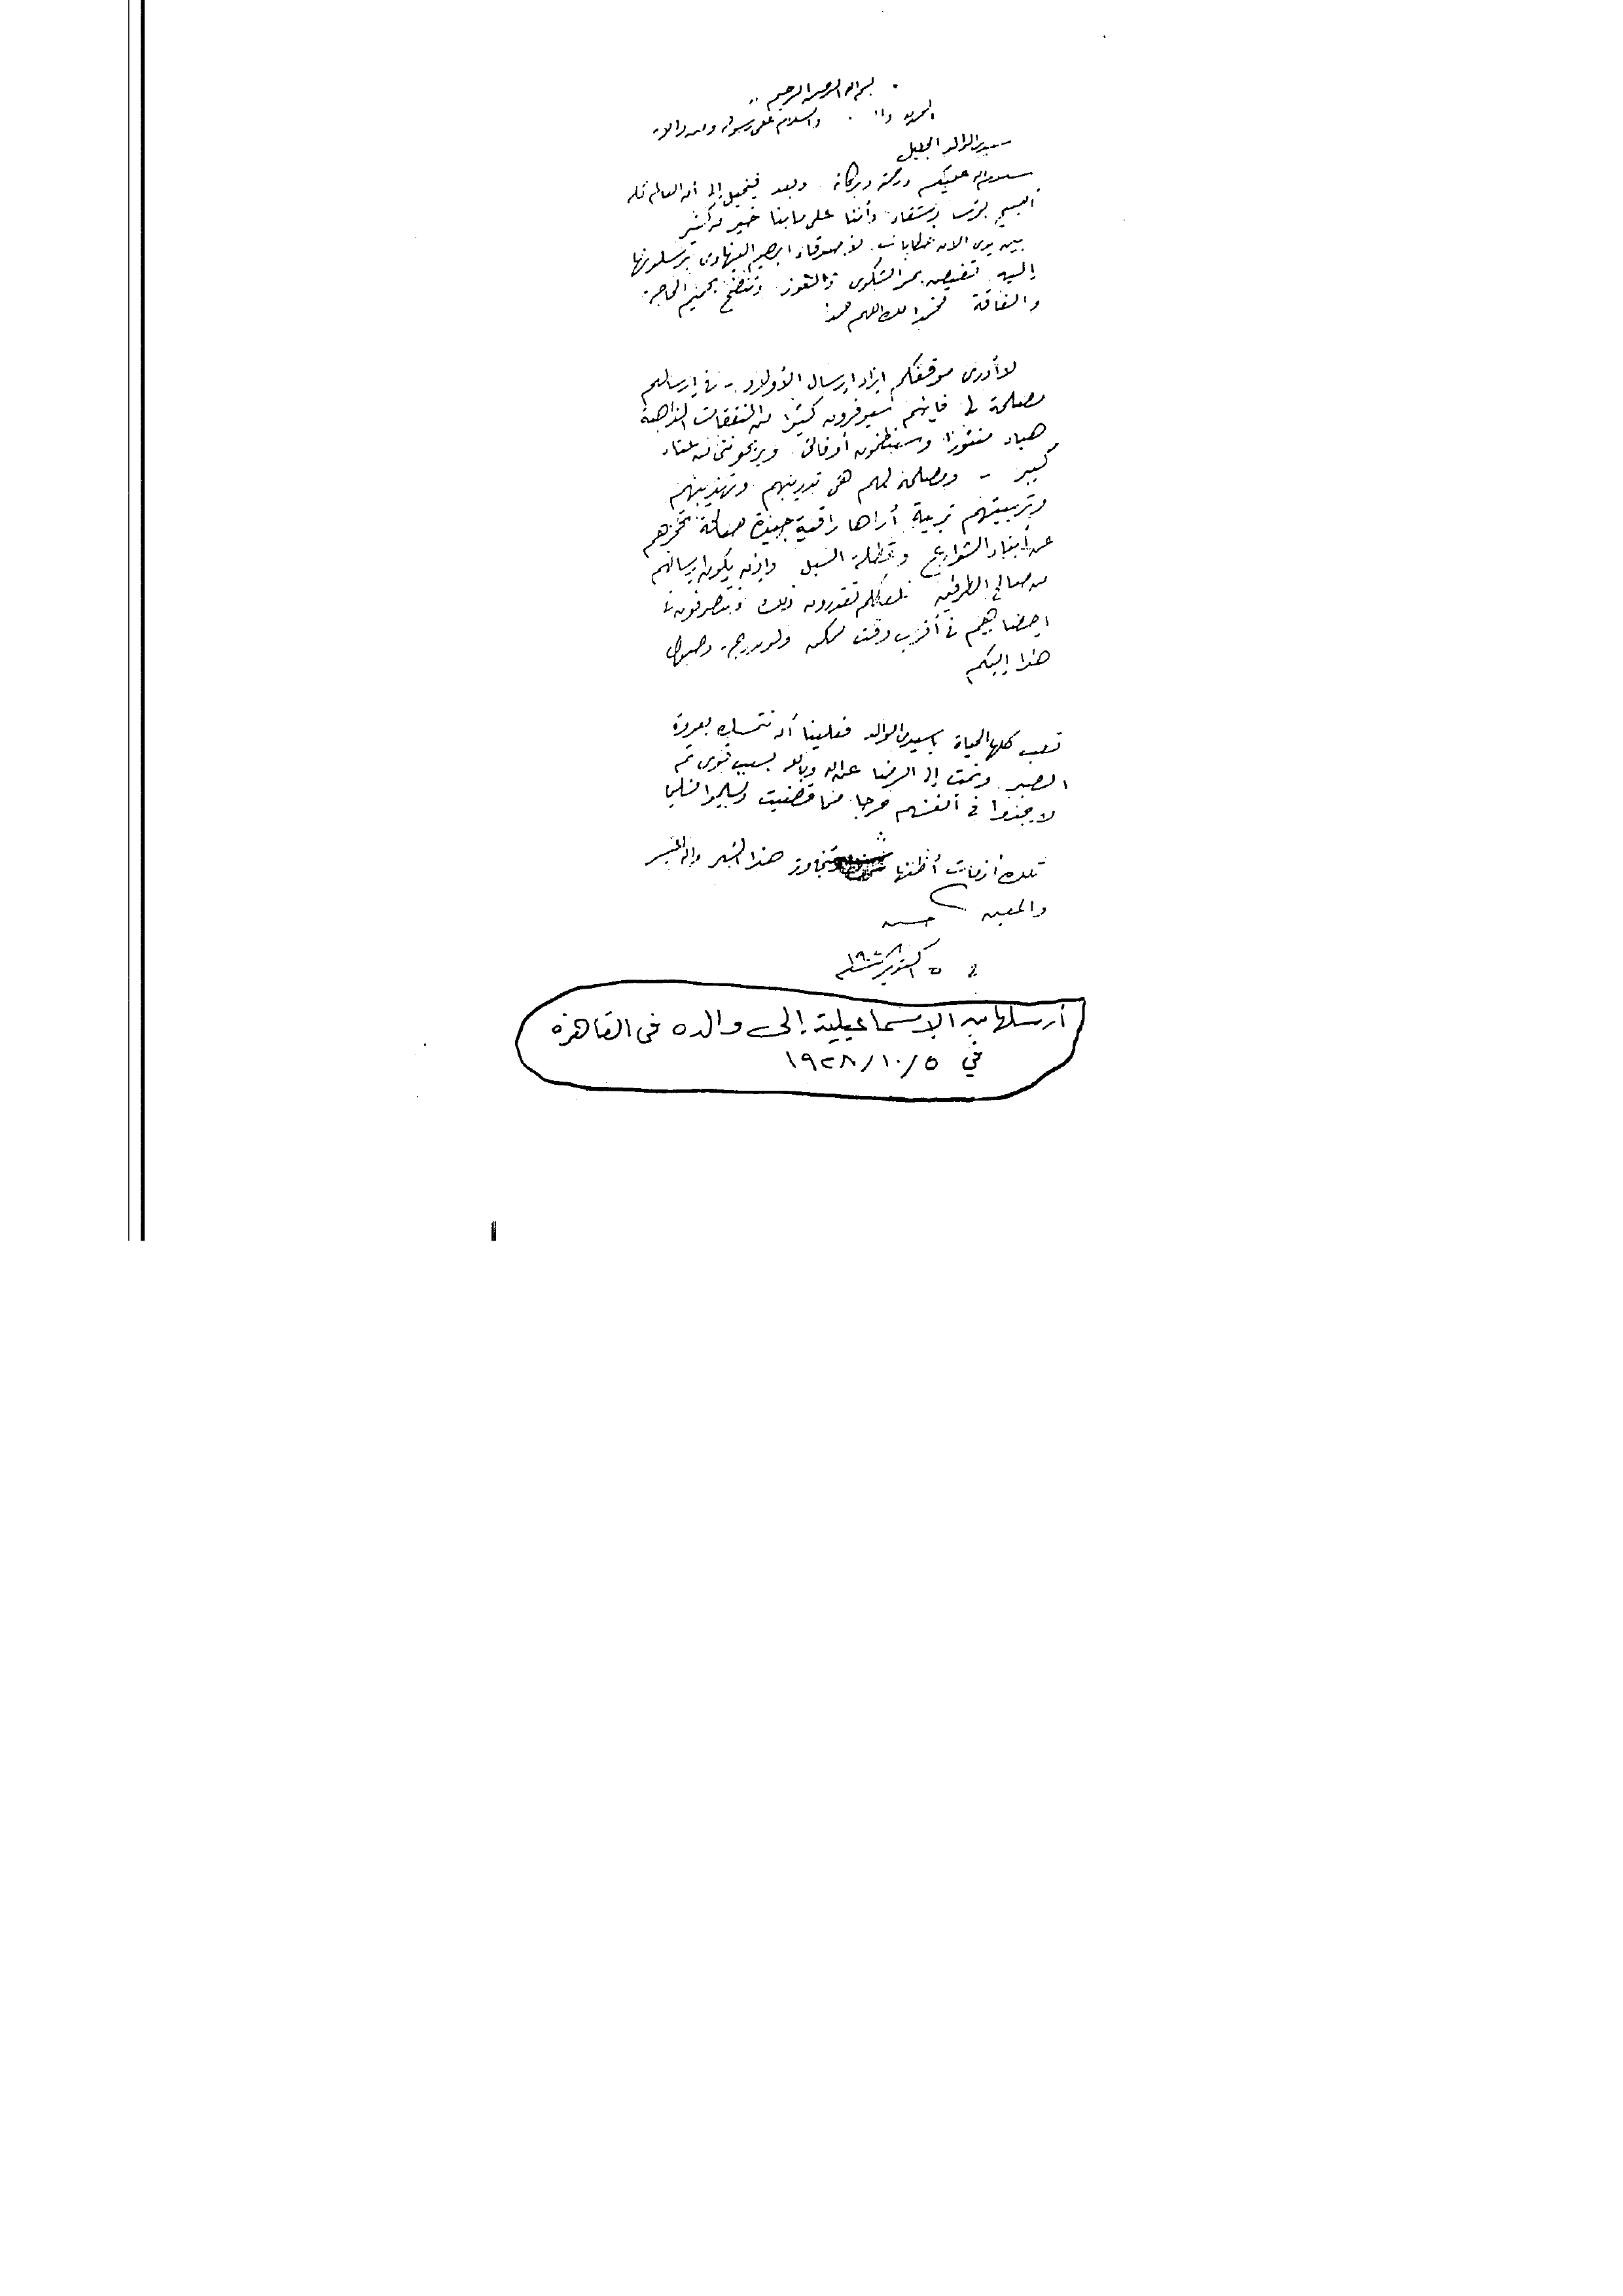 بسم الله الرحمن الرحيم
الحمد لله والسلام على رسول الله ومن والاه
سيدى الوالد الجليل
سلام الله عليكم ورحمته وبركاته وبعد فيخيل إلى أن العالم كله
أصبح بؤسا وشقاء وأننا على ما بنا خير من كثير
بين يدى الآن خطابات لأصدقاء ابراهيم يرسلونها
إليه تفيض بمر الشكوى والعوز وتنضح بحميم الحاجة
والفاقة فحمدا لك اللهم حمدا
لا أدرى موقفكم ازاء إرسال الأولاد - فى إرسالهم
مصلحة لى فإنهم سيوفرون كثيرا من النفقات الذاهبة
هباء منثورا وسينظمون أوقاتى ويريحوننى من عناء
كبير - ومصلحة لهم هى تدريبهم وتهذيبهم
وتربيتهم تربية أراها راقية جيدة صالحة تحجزهم
عن أبناء الشوارع السبل وإذن يكون إرسالهم
من صالح الطرفين فلعلكم تقدرون ذلك وتتصرفون فى
احضارهم فى أقرب وقت ممكن ولو بمجرد وصول
هذا إليكم
تعب كلها الحياة يا سيدى الوالد فعلينا أن نتمسك بعروة
الصبر ونمت إلى الرضا عن الله وبالله بسبب قوى ثم
لا يجدوا فى أنفسهم حرجا مما قضيت ويسلموا تسليما
تلك أزمات أظنها تتجاوز هذا الشهر والله الميسر
والمعين
حسن
فى ٥ اكتوبر سنة ١٩٢٨
أرسلها من الإسماعيلية إلى والده فى القاهرة
في ١٩٢٨/١٠/٥